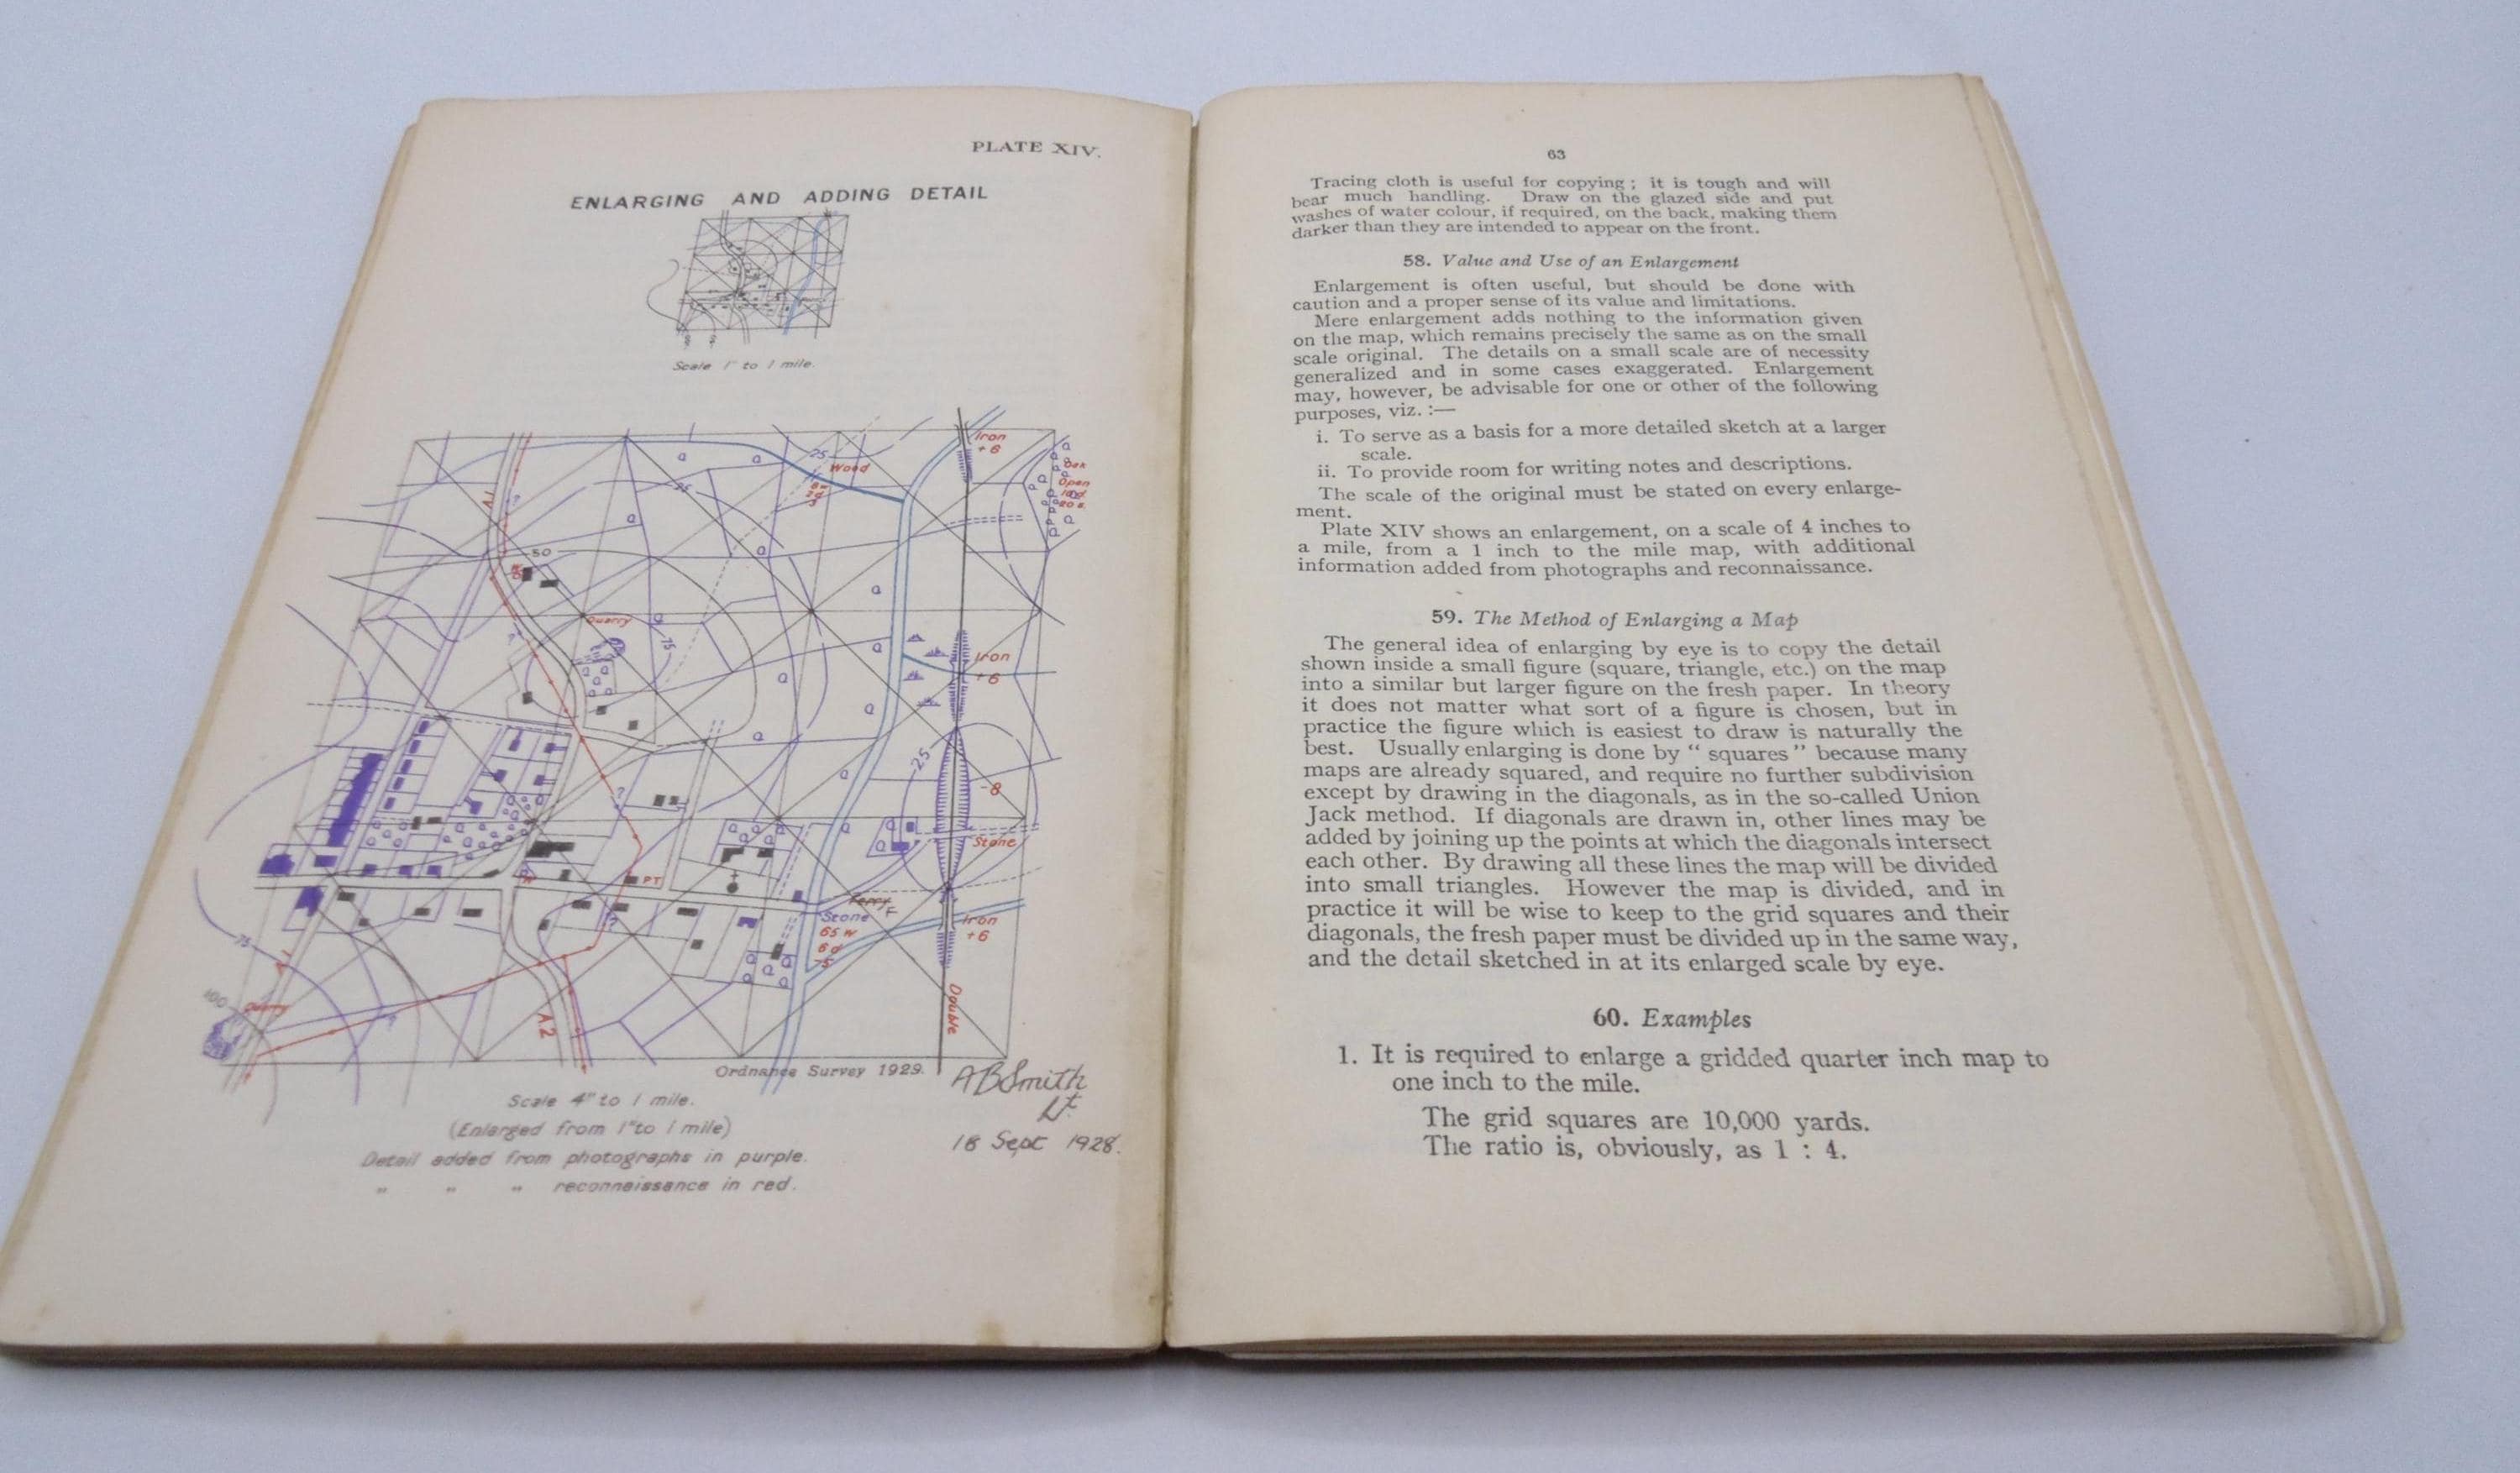 PLATE XIV.
ENLARGING AND ADDING DETAIL
Scale 1" to 1 mile.
Iron
+8
25
Wood
Oak
Open
A1
25
50
Quarry
75
Iron
+6
25
-8
Stone
PT
Ferry
F
Stone
65 w
6 d
75
Iron
+6
75
100
Quarry
A2
Double
Ordnance Survey 1929.
A B Smith
Lt.
18 Sept 1928.
Scale 4" to 1 mile.
(Enlarged from 1" to 1 mile)
Detail added from photographs in purple.
" " " reconnaissance in red.
63
Tracing cloth is useful for copying; it is tough and will
bear much handling. Draw on the glazed side and put
washes of water colour, if required, on the back, making them
darker than they are intended to appear on the front.
58. Value and Use of an Enlargement
Enlargement is often useful, but should be done with
caution and a proper sense of its value and limitations.
Mere enlargement adds nothing to the information given
on the map, which remains precisely the same as on the small
scale original. The details on a small scale are of necessity
generalized and in some cases exaggerated. Enlargement
may, however, be advisable for one or other of the following
purposes, viz. :—
i. To serve as a basis for a more detailed sketch at a larger
scale.
ii. To provide room for writing notes and descriptions.
The scale of the original must be stated on every enlarge-
ment.
Plate XIV shows an enlargement, on a scale of 4 inches to
a mile, from a 1 inch to the mile map, with additional
information added from photographs and reconnaissance.
59. The Method of Enlarging a Map
The general idea of enlarging by eye is to copy the detail
shown inside a small figure (square, triangle, etc.) on the map
into a similar but larger figure on the fresh paper. In theory
it does not matter what sort of a figure is chosen, but in
practice the figure which is easiest to draw is naturally the
best. Usually enlarging is done by " squares " because many
maps are already squared, and require no further subdivision
except by drawing in the diagonals, as in the so-called Union
Jack method. If diagonals are drawn in, other lines may be
added by joining up the points at which the diagonals intersect
each other. By drawing all these lines the map will be divided
into small triangles. However the map is divided, and in
practice it will be wise to keep to the grid squares and their
diagonals, the fresh paper must be divided up in the same way,
and the detail sketched in at its enlarged scale by eye.
60. Examples
1. It is required to enlarge a gridded quarter inch map to
one inch to the mile.
The grid squares are 10,000 yards.
The ratio is, obviously, as 1 : 4.